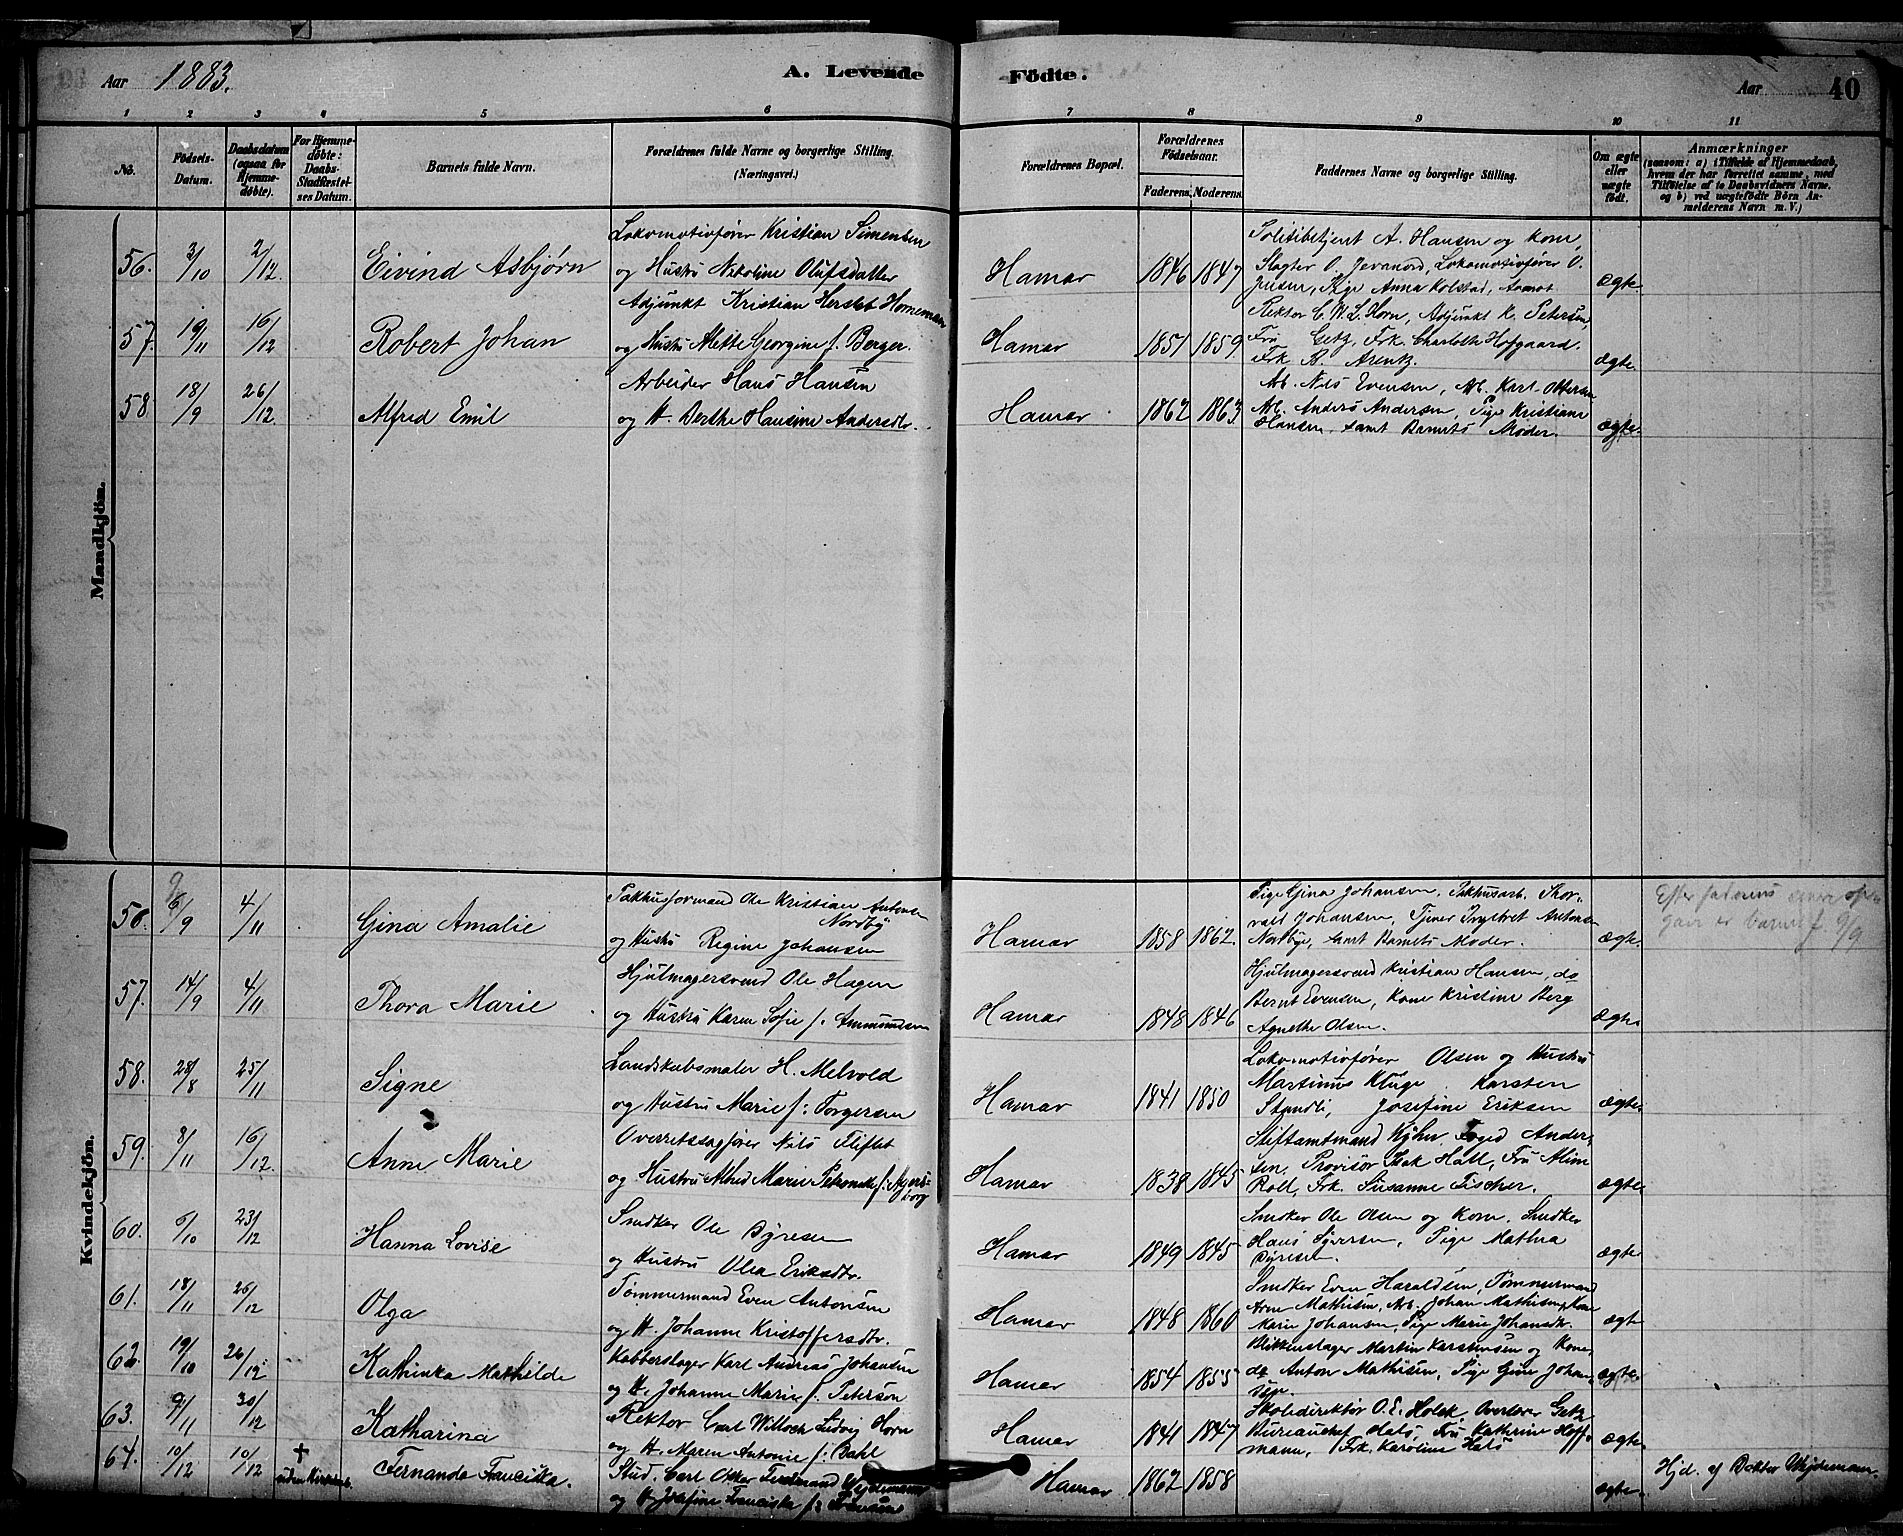 Aar 1883.
A. Levende Födte.
Aar 40
1 2 3 4 5 6 7 8 9 10 11
No.
Födsels-Datum.
Daabsdatum (ogsaa for Hjemme-döbte).
For Hjemme-döbte: Daabs-Stadfæstel-ses Datum.
Barnets fulde Navn.
Forældrenes fulde Navne og borgerlige Stilling. (Næringsvei.)
Forældrenes Bopæl.
Forældrenes Födselsaar.
Faderens. Moderens.
Faddernes Navne og borgerlige Stilling.
Om ægte eller uægte födt.
Anmærkninger
(saasom: a) i Tilfælde af Hjemmedaab,
hvem der har forrettet samme, med
Tilföielse af to Daabsvidners Navne.
og b) ved uægtefödte Börn An-
melderens Navn m. V.)
Mandkjön.
Lokomotivfører Kristian Simensen
56. 3/10 2/12. Eivind Asbjørn og Hustru Nikoline Olufsdatter Hamar 1846 1847 ægte.
Politibetjent A. Hansen og Kone,
Slagter O. Jevanord, Lokomotivfører O.
Pige Anna Kolstad,
Adjunkt Kristian Hersleb Hornemann
57. 19/11 16/12 Robert Johan og Hustru Mette Georgine f. Berger. Hamar 1851 1859 ægte.
Rektor C. W. L. Horn, Adjunkt K. Petersen,
Fru Getz, Frk. Charlotte Hofgaard.
Frk. B. Arentz.
Arbeider Hans Hansen
58 18/9 26/12. Alfred Emil og H. Berthe Hansine Andersdtr. Hamar 1862 1863 ægte.
Arb. Nils Evensen, Arb. Karl Ottersen
Arb. Anders Andersen, Pige Kristiane
Hansen samt Barnets Moder.
Kvindekjön.
Pakhusformand Ole Kristian Antonsen
Nordby
56. 6/9 4/11 Gina Amalie og Hustru Regine Johansen Hamar 1858 1862. ægte.
Pige Gina Johansen, Pakhusarb. Thor-
vald Johansen, Tjener Antonsen
Nordbye, samt Barnets Moder.
Efter faderens
gave er barnet f. 9/9
Hjulmagersvend Ole Hagen
57. 14/9 4/11 Thora Marie og Hustru Karen Sofie f. Ammundsen Hamar 1848 1846 ægte
Hjulmagersvend Kristian Hansen, do
Bernt Evensen, Kone Kristine Berg
Agnethe Olsen.
Landskabsmaler H. Melvold
58. 28/8 25/11 Signe og Hustru Marie f. Torgersen Hamar 1841 1850 ægte.
Lokomotivfører Olsen og Hustru
Martinus Kluge Karsten
Josefine Eriksen
Overretssagfører Nils Fliflet
59. 8/11 16/12. Anne Marie og Hustru Alfhild Marie Petronelle f. Hamar 1838 1845 ægte.
Stiftamtmand Foged Ander-
sen, Provisor Isak Hall, Fru Aline
Roll, Frk. Susanne Fischer.
Smedker Ole Byresen
60. 6/10 23/12 Hanna Lovise og Hustru Olea Eriksdtr. Hamar 1849 1845 ægte
Smedker Ole Olsen og Kone, Smedker
Hans Pige Mathea
Byresen
Tømmermand Even Antonsen
61. 18/11 26/12 Olga og H. Johanne Kristoffersdtr. Hamar 1848 1860 ægte
Smedker Even Haraldsen, Tømmermand
Arne Mathisen, Arb. Johan Mathisen, Kone
Marie Johansen, Pige Marie Johansdtr.
Kobberslager Karl Andreas Johansen
62. 19/10 26/12. Kathinka Mathilde og H. Johanne Marie f. Peterson Hamar 1854 1855 ægte
Blikkenslager Martin Karstensen og Kone,
do Anton Mathisen, Pige Gine Johan-
sen.
Rektor Carl Willoch Ludvig Horn
63. 9/11 30/12 Katharina og H. Maren Antonie f. Dahl Hamar 1841 1847 ægte.
Skoledirektør O. E. Holck, Overlærer Getz
Bureauchef Hals, Fru Kathrine Hoff-
mann, Frk. Karoline Hals
Stud. Carl Oskar Ferdinand Wejdemann
64. 10/12 10/12 + Fernanda Franciska. og H. Josefine Franciska f. Hamar 1862 1858 ægte.
Hjd. af Doktor Wejdemann.